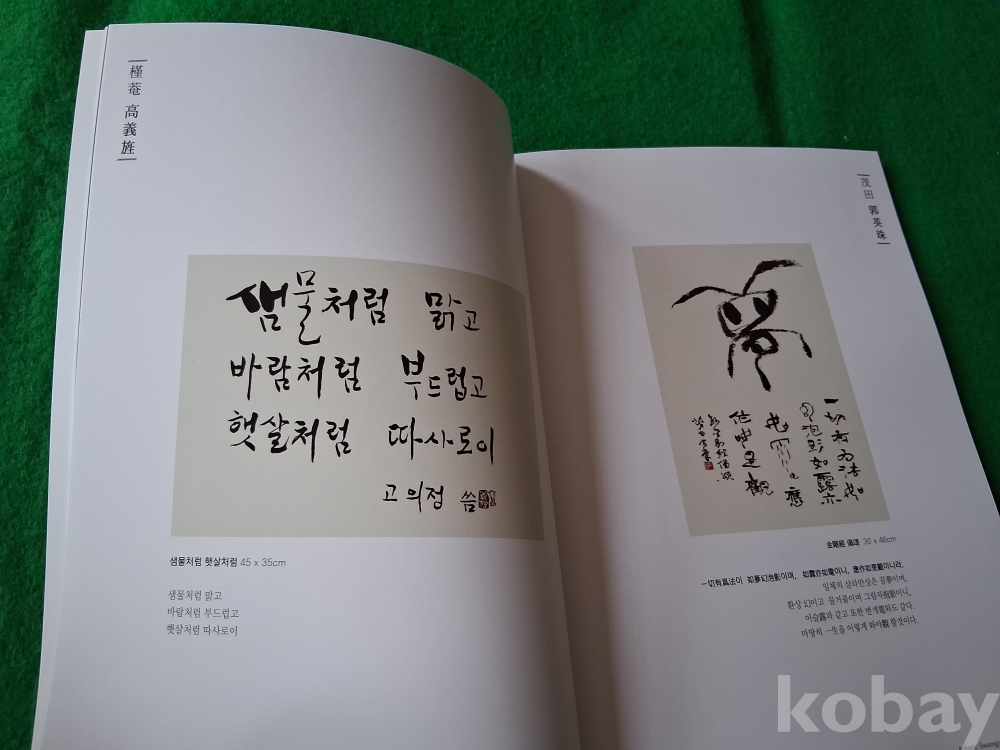 槿菴 高義旌
샘물처럼 맑고
바람처럼 부드럽고
햇살처럼 따사로이
고의정 씀
샘물처럼 햇살처럼 45 x 35cm
샘물처럼 맑고
바람처럼 부드럽고
햇살처럼 따사로이
茂田 郭英珠
一切有为法如
泡影如露亦
應
作如是觀
金剛經 偈頌 30 x 46cm
一切有爲法이 如夢幻泡影이며, 如露亦如電이니, 應作如是觀이니라.
일체의 삼라만상은 꿈夢이며,
환상 幻이고 물거품이며 그림자泡影이니,
이슬露과 같고 또한 번개電와도 같다.
마땅히 一生을 이렇게 봐야觀 할것이다.
kobay